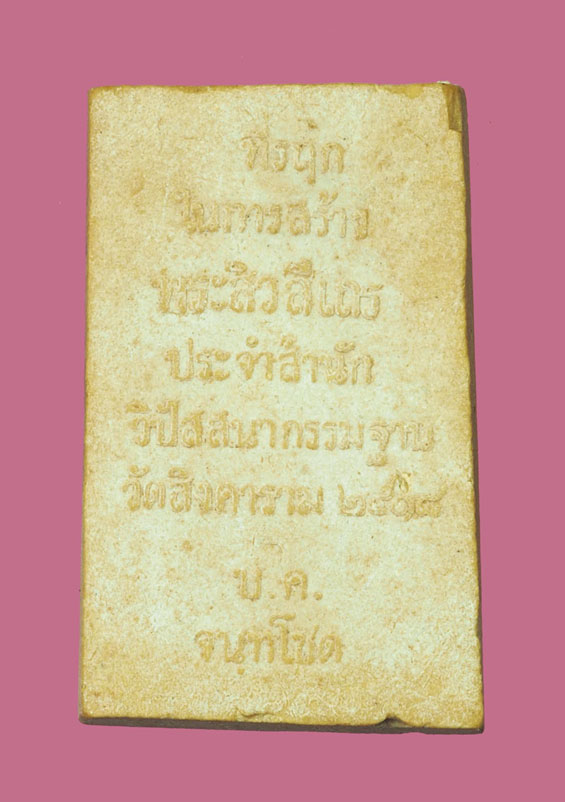 ที่ระฤก
ในการสร้าง
พระสิวลีเถร
ประจำสำนัก
วิปัสสนากรรมฐาน
วัดสิงคาราม
ป.ค.
จนฺทโชต